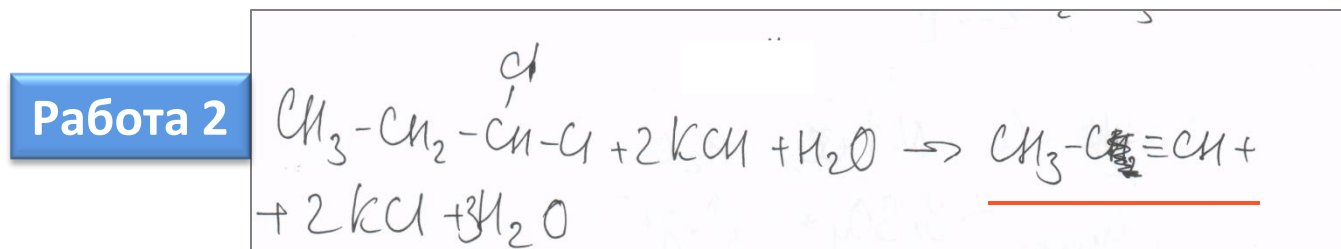 Работа 2
Cl
CH₃-CH₂-CH-Cl + 2KOH + H₂O → CH₃-C≡CH +
+ 2KCl + 3H₂O